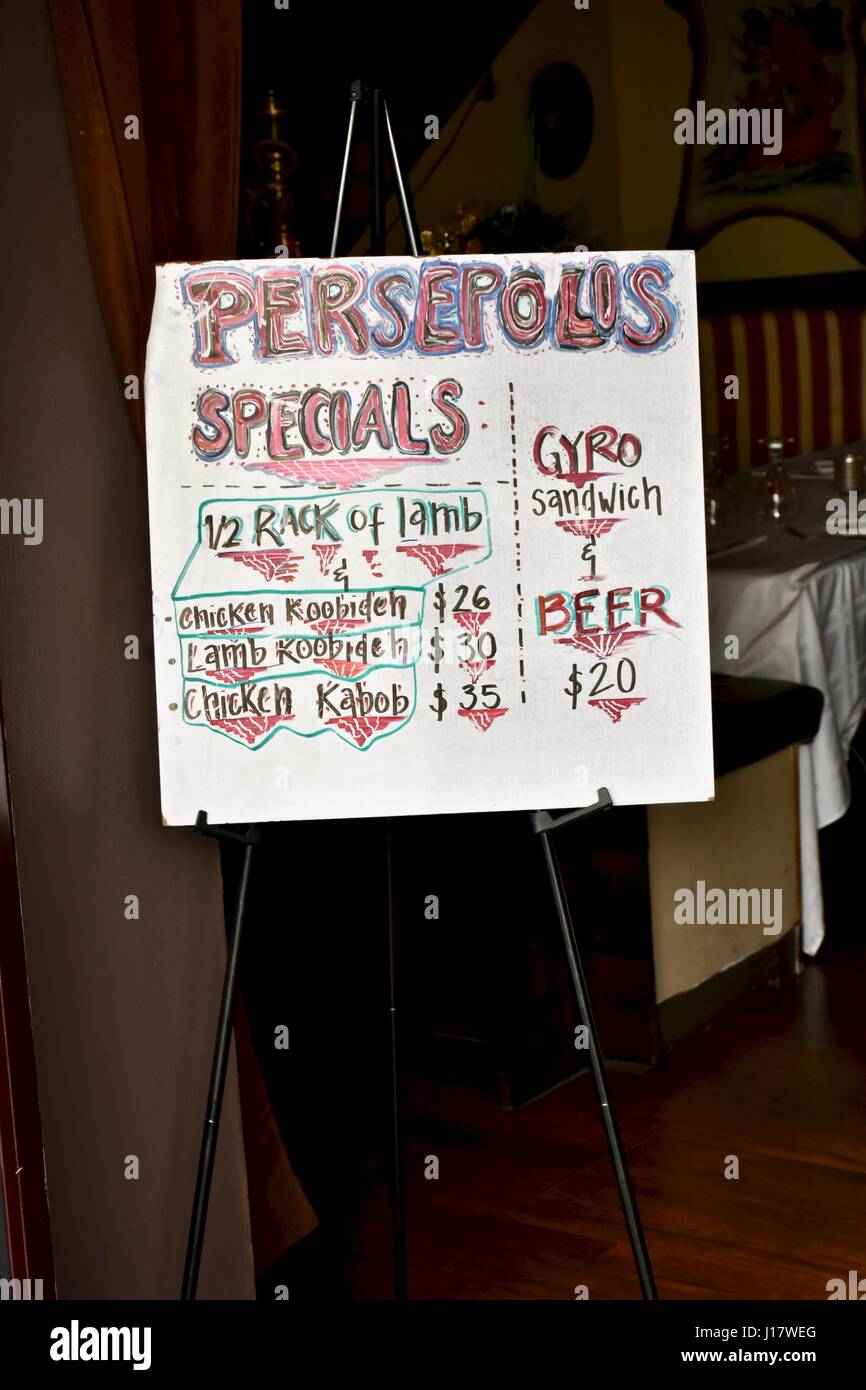 PERSEPOLIS
SPECIALS
1/2 RACK of lamb
&
chicken Koobideh $26
Lamb Koobideh $30
Chicken Kabob $35
GYRO
sandwich
&
BEER
$20
a
alamy
a
alamy
a
alamy stock photo
J17WEG
www.alamy.com